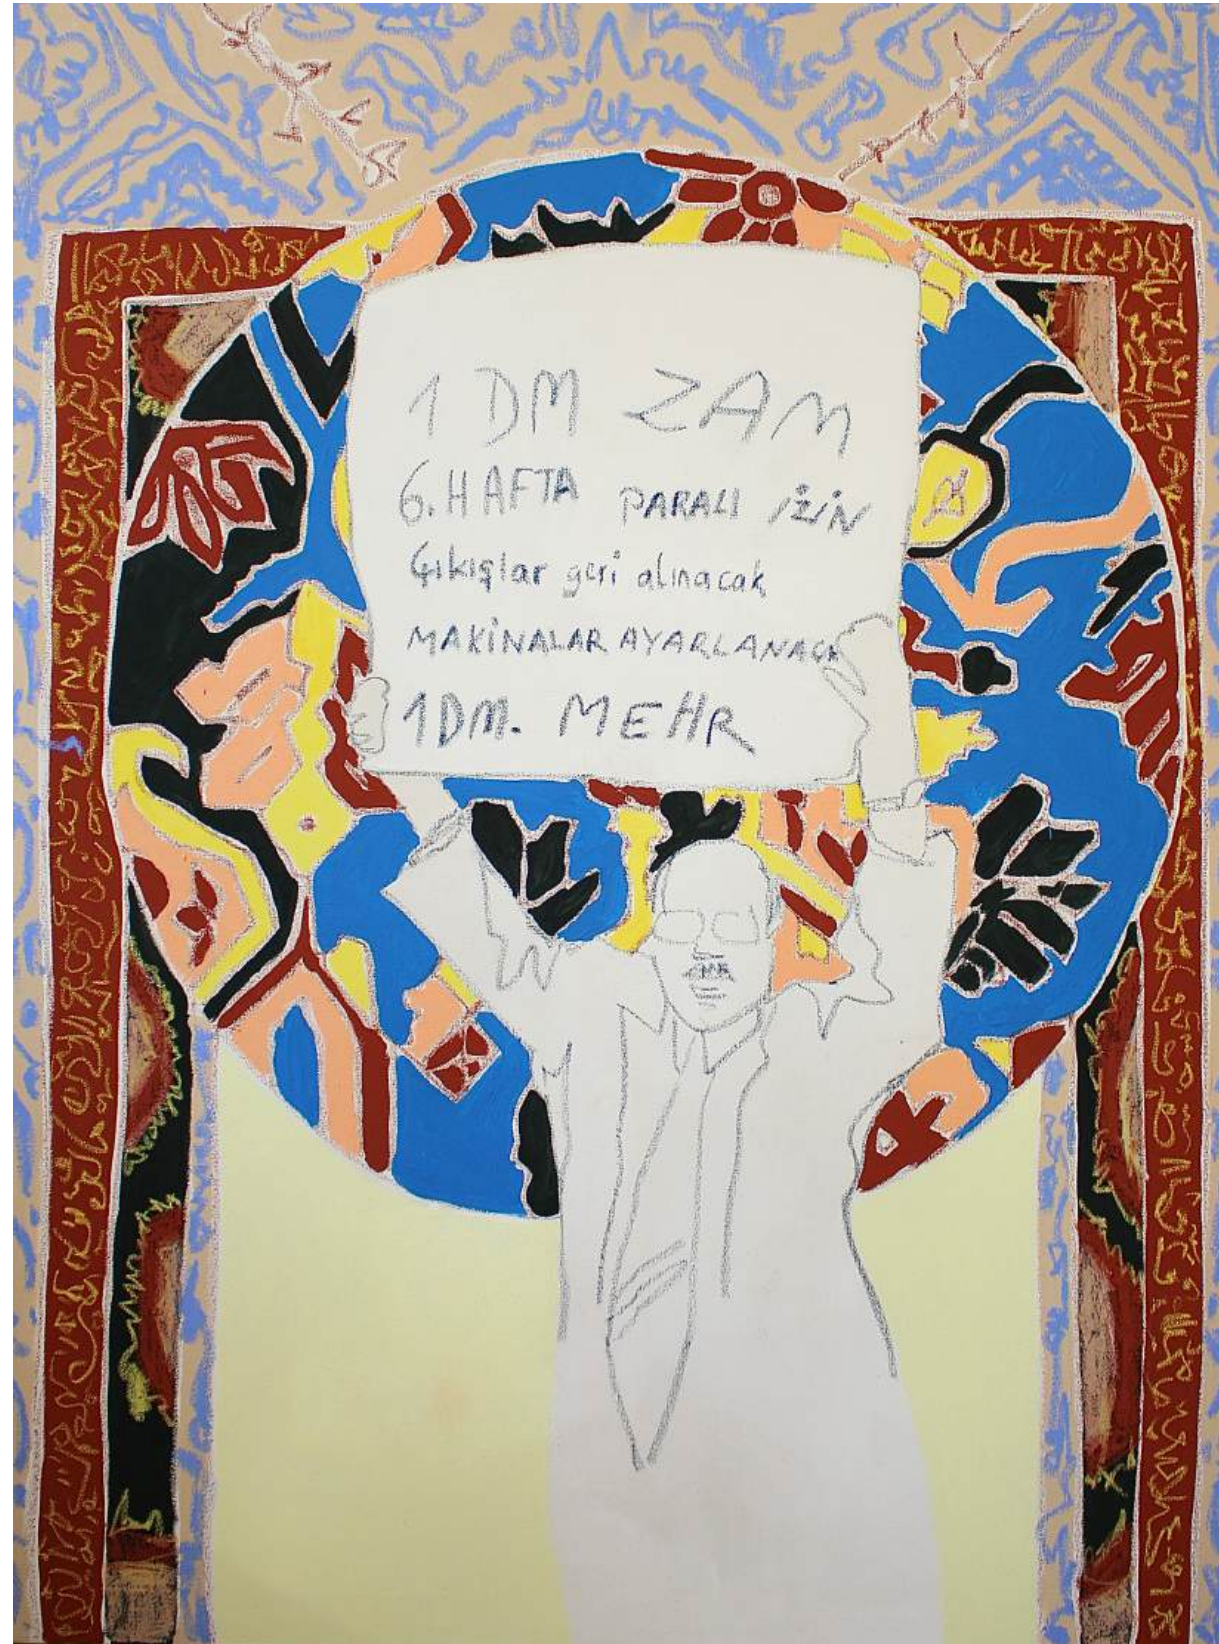 1 DM ZAM
6. HAFTA PARALI İZİN
Çıkışlar geri alınacak
MAKİNALAR AYARLANACK
1DM. MEHR